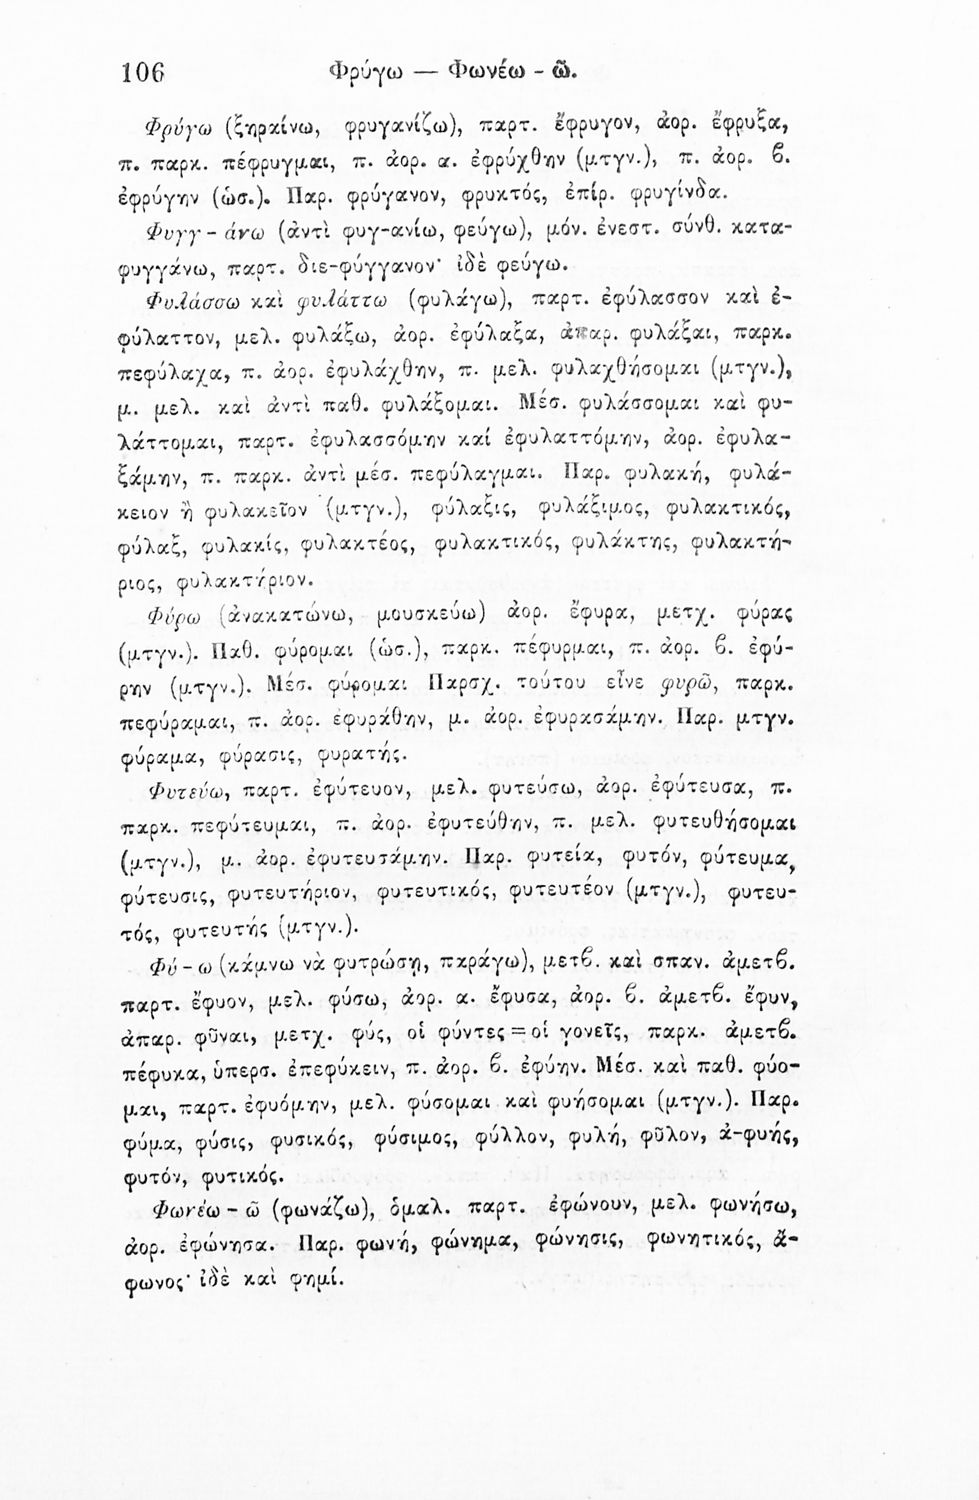 106 Φρύγω — Φωνέω - ῶ.
Φρύγω (ξηραίνω, φρυγανίζω), παρτ. ἔφρυγον, ἀορ. ἔφρυξα,
π. παρκ. πέφρυγμαι, π. ἀορ. α. ἐφρύχθην (μτγν.), π. ἀορ. ϐ.
ἐφρύγην (ὡσ.). Παρ. φρύγανον, φρυκτός, ἐπίρ. φρυγίνδα.
Φυγγ - άνω (ἀντὶ φυγ-ανίω, φεύγω), μόν. ἐνεστ. σύνθ. κατα-
φυγγάνω, παρτ. διε-φύγγανον· ἰδὲ φεύγω.
Φυλάσσω καὶ φυλάττω (φυλάγω), παρτ. ἐφύλασσον καὶ ἐ-
φύλαττον, μελ. φυλάξω, ἀορ. ἐφύλαξα, ἀπαρ. φυλάξαι, παρκ.
πεφύλαχα, π. ἀορ. ἐφυλάχθην, π. μελ. φυλαχθήσομαι (μτγν.),
μ. μελ. καὶ ἀντὶ παθ. φυλάξομαι. Μέσ. φυλάσσομαι καὶ φυ-
λάττομαι, παρτ. ἐφυλασσόμην καί ἐφυλαττόμην, ἀορ. ἐφυλα-
ξάμην, π. παρκ. ἀντὶ μέσ. πεφύλαγμαι. Παρ. φυλακή, φυλά-
κειον ἢ φυλακεῖον (μτγν.), φύλαξις, φυλάξιμος, φυλακτικός,
φύλαξ, φυλακίς, φυλακτέος, φυλακτικός, φυλάκτης, φυλακτή-
ριος, φυλακτήριον.
Φύρω (ἀνακατώνω, μουσκεύω) ἀορ. ἔφυρα, μετχ. φύρας
(μτγν.). Παθ. φύρομαι (ὡσ.), παρκ. πέφυρμαι, π. ἀορ. ϐ. ἐφύ-
ρην (μτγν.). Μέσ. φύρομαι Παρσχ. τούτου εἶνε φυρῶ, παρκ.
πεφύραμαι, π. ἀορ. ἐφυράθην, μ. ἀορ. ἐφυρασάμην. Παρ. μτγν.
φύραμα, φύρασις, φυρατής.
Φυτεύω, παρτ. ἐφύτευον, μελ. φυτεύσω, ἀορ. ἐφύτευσα, π.
παρκ. πεφύτευμαι, π. ἀορ. ἐφυτεύθην, π. μελ. φυτευθήσομαι
(μτγν.), μ. ἀορ. ἐφυτευσάμην. Παρ. φυτεία, φυτόν, φύτευμα,
φύτευσις, φυτευτήριον, φυτευτικός, φυτευτέον (μτγν.), φυτευ-
τός, φυτευτής (μτγν.).
Φύ - ω (κάμνω νὰ φυτρώσῃ, παράγω), μετϐ. καὶ σπαν. ἀμετϐ.
παρτ. ἔφυον, μελ. φύσω, ἀορ. α. ἔφυσα, ἀορ. ϐ. ἀμετϐ. ἔφυν,
ἀπαρ. φῦναι, μετχ. φύς, οἱ φύντες = οἱ γονεῖς, παρκ. ἀμετϐ.
πέφυκα, ὑπερσ. ἐπεφύκειν, π. ἀορ. ϐ. ἐφύην. Μέσ. καὶ παθ. φύο-
μαι, παρτ. ἐφυόμην, μελ. φύσομαι καὶ φυήσομαι (μτγν.). Παρ.
φύμα, φύσις, φυσικός, φύσιμος, φύλλον, φυλή, φῦλον, ἀ-φυής,
φυτόν, φυτικός.
Φωνέω - ῶ (φωνάζω), ὁμαλ. παρτ. ἐφώνουν, μελ. φωνήσω,
ἀορ. ἐφώνησα. Παρ. φωνή, φώνημα, φώνησις, φωνητικός, ἄ-
φωνος· ἰδὲ καὶ φημί.